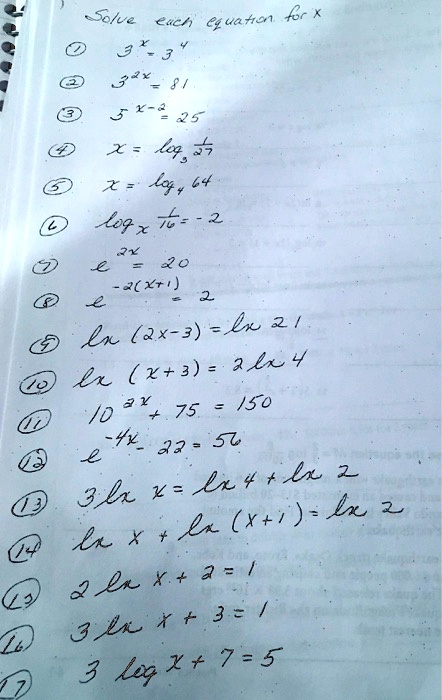 Solve each equation for x
① 3^x = 3^4
② 3^2x = 81
③ 5^x-2 = 25
④ x = log_3 1/27
⑤ x = log_4 64
⑥ log_x 1/16 = -2
⑦ e^2x = 20
⑧ e^-2(x+1) = 2
⑨ ln (2x-3) = ln 21
⑩ ln (x+3) = 2 ln 4
⑪ 10^2x + 75 = 150
⑫ e^-4x - 22 = 56
⑬ 3 ln x = ln 4 + ln 2
⑭ ln x + ln (x+1) = ln 2
⑮ 2 ln x + 2 = 1
⑯ 3 ln x + 3 = 1
⑰ 3 log x + 7 = 5